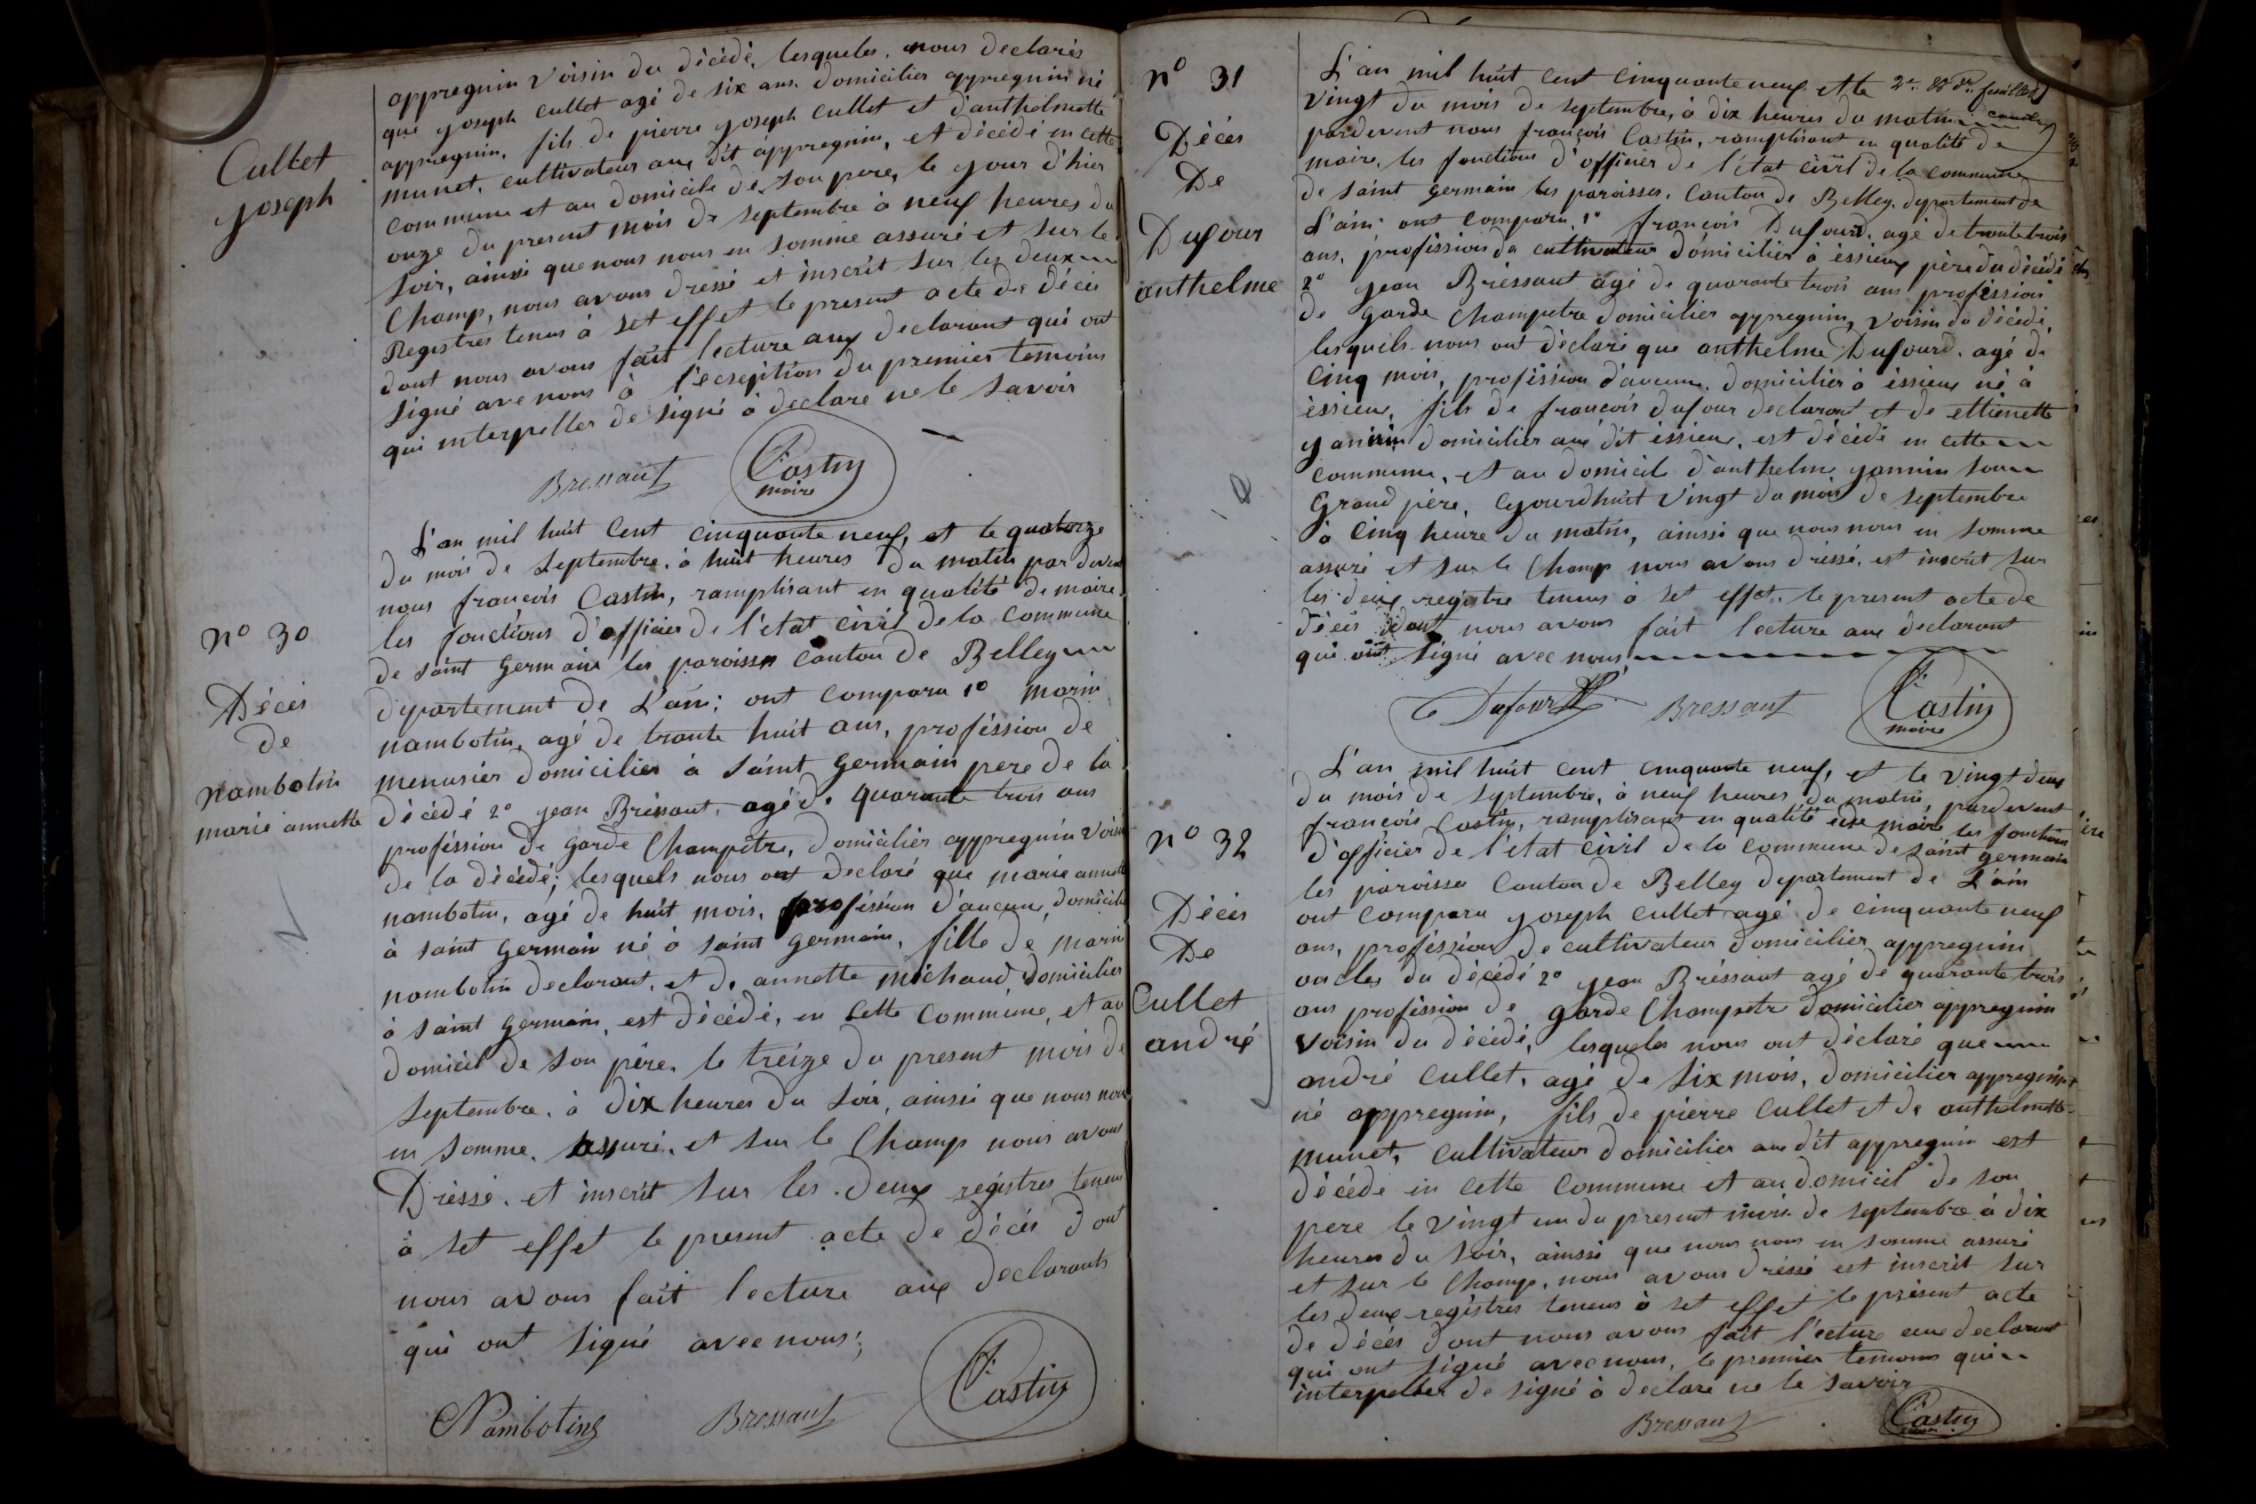 Cullet
Joseph
appregnin voisin du décédé, lesqueles nous declarés
que joseph Cullet agé de six ans domicilier appregnin né
appregnin, fils de pierre joseph Cullet et d'anthelmette
munet, cultivateur aux dit appregnin, et décédé en cette
commune et au domicile de son pere, le jour d'hier
onze du present mois de septembre à neuf heures du
soir, ainsi que nous nous en somme assuré et sur le
Champ, nous avons dressé et inscrit sur les deux
Registres tenus à set effet le present acte de décès
dont nous avons fait lecture aux declarant qui ont
signé avec nous à l'ecseption du premier temoins
qui interpeller de signé à declare ne le savoir
Bressaut Castin
maire
N° 30
Décès
de
Nambotin
marie annette
L'an mil huit Cent Cinquante neuf, et le quatorze
du mois de Septembre, à huit heures du matin par devent
nous françois Castin, ramplisant en qualité de maire
les fonctions d'officier de l'etat civil de la Commune
de saint Germain les paroisses Canton de Belley
departement de L'ain; ont comparu 1° marin
nambotin, agé de trante huit ans, proféssion de
menusier domicilier à Saint Germain pere de la
décédé 2° jean Bressaut, agé de quarante trois ans
proféssion de garde Champêtre, domicilier appregnin voisin
de la décédé; lesquels nous ont declaré que marie annette
nambotin, agé de huit mois, proféssion d'aucune, domicilié
à saint Germain né à saint Germain, fille de marin
nambotin declarant, et de annette michaud, domicilier
à saint Germain, est décédé, en cette Commune, et au
domicil de son père, le treize du present mois de
septembre, à dix heures du soir, ainsi que nous nous
en somme assuré, et sur le Champ nous avons
Dréssé et inscrit sur les deux registres tenus
à set effet le present acte de décès dont
nous avons fait lecture aux declarants
qui ont signé avec nous;
Nambotin Bressaut Castin
N° 31
Décés
De
Dufour
anthelme
L'an mil huit Cent Cinquante neuf et le 2e et der feuillet
vingt du mois de septembre, à dix heures du matin
pardevent nous françois Castin, ramplisant en qualité de
maire, les fonctions d'officier de l'état civil de la Commune
de saint Germain les paroisses, Canton de Belley, departement de
L'ain; ont Comparu 1° françois Dufourd, agé de trente trois
ans, proféssion de cultivateur domicilier à éssieux père du décédé
2° jean Bressaut agé de quarante trois ans proféssion
de garde Champetre domicilier appregnin, voisin du décédé,
lesquels nous ont déclaré que anthelme Dufourd, agé de
Cinq mois, proféssion d'aucune, domicilier à éssieux né à
éssieux, fils de françois dufour declarant et de ettienette
yannin domicilier aux dit éssieux, est décédé en cette
commune, et au domicil d'anthelme yannin son
Grand père, Cejourdhuit vingt du mois de septembre
à Cinq heure du matin, ainssi que nous nous en somme
assuré et sur le Champ nous avons dréssé, est inscrit sur
les deux registre tenus à set effet, le present acte de
décés dont nous avons fait lecture aux déclarant
qui ont signé avec nous
Dufourd Bressaut Castin
maire
N° 32
Décés
De
Cullet
andré
L'an mil huit cent cinquante neuf, et le vingt deux
du mois de septembre, à neuf heures du matin, pardevent
françois Castin, ramplisant en qualité de maire les fonctions
d'officier de l'état civil de la Commune de saint Germain
les paroisses Canton de Belley departement de L'ain
ont Comparu joseph Cullet agé de cinquante neuf
ans, proféssion de cultivateur domicilier appregnin
oncles du décédé 2° jean Bréssaut agé de quarante trois
ans proféssion de garde Champetre domicilier appregnin
voisin du décédé, lesqueles nous ont déclaré que
andré Cullet, agé de six mois, domicilier appregnin
né appregnin, fils de pierre Cullet et de anthelmette
munet, Cultivateur domicilier aux dit appregnin est
décédé en cette Commune et au domicil de son
pere le vingt un du present mois de septembre à dix
heures du soir, ainssi que nous nous en somme assuré
et sur le Champ, nous avons dréssé est inscrit sur
les deux registres tenus à set effet le présent acte
de décés dont nous avons fait lecture aux declarant
qui ont signé avec nous, le premier temoins qui
interpeller de signé à declare ne le savoir
Bressaut Castin